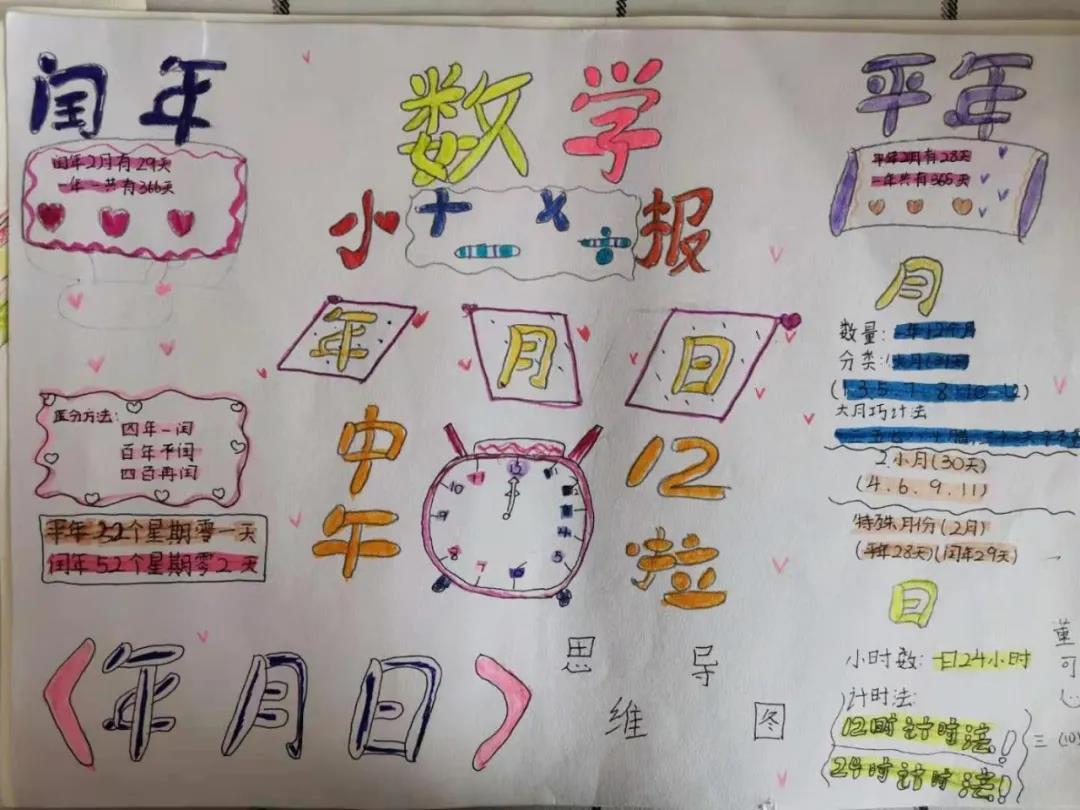 闰年
闰年2月有29天
一年一共有366天
区分方法:
四年一闰
百年不闰
四百再闰
平年52个星期零一天
闰年52个星期零2天
数学
小 + × ÷ 报
年 月 日
中午
12啦
《年月日》
思维导图
平年
平年2月有28天
一年共有365天
月
数量:一年12个月
分类:
(1.3.5.7.8.10.12)
大月巧计法
2.小月(30天)
(4.6.9.11)
特殊月份(2月)
(平年28天)(闰年29天)
日
小时数:一日24小时
计时法:
12时计时法!
24时计时法!
董可心
三(10)